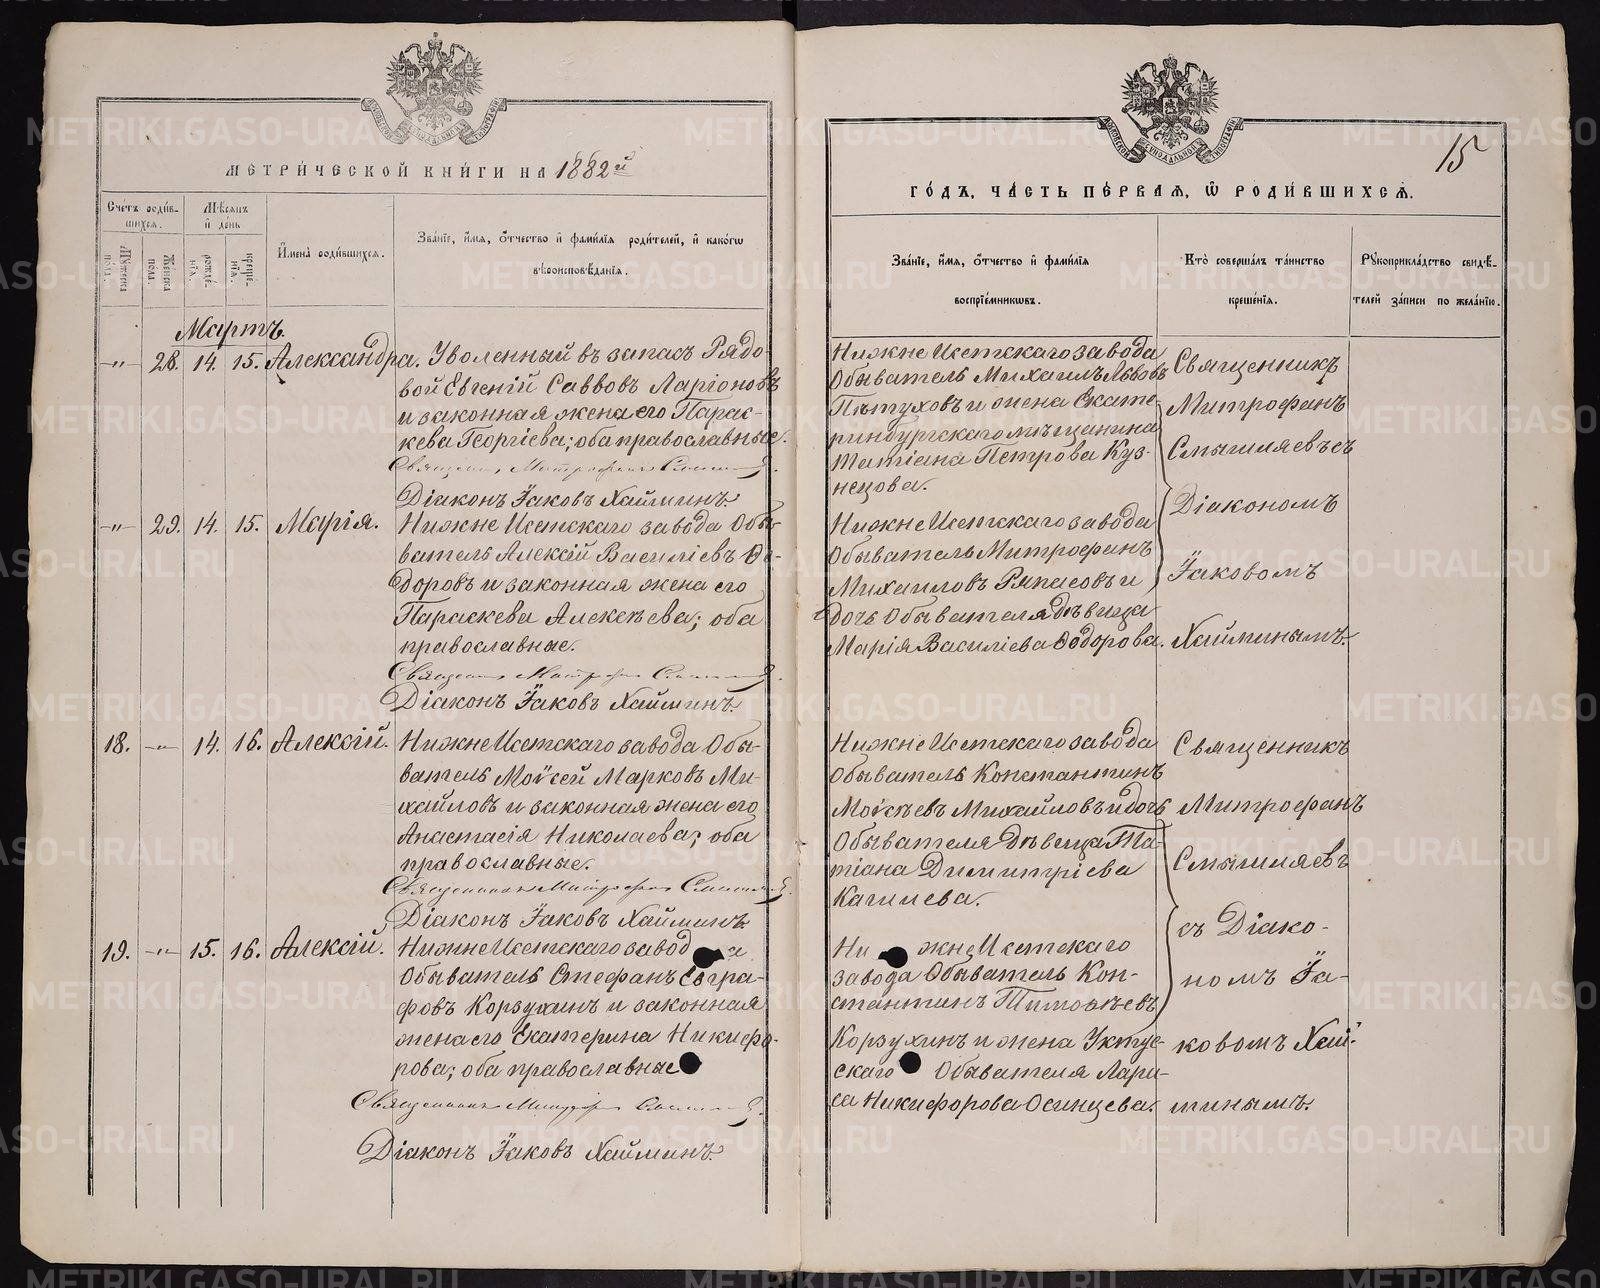 МЕТРИЧЕСКОЙ КНИГИ НА 1882й
Счетъ родив-
шихся.
Мѣсяцъ
и день
Мужеска
пола.
Женска
пола.
рожде-
нія.
креще-
нія.
Имена родившихся.
Званіе, имя, отчество и фамилія родителей, и какого
вѣроисповѣданія.
Мартъ.
-"- 28. 14. 15. Александра. Уволенный въ запасъ Рядо-
вой Евгеній Саввовъ Ларіоновъ
и законная жена его Парас-
кева Георгіева; оба православные.
Священникъ Митрофанъ
Діаконъ Іаковъ Хайминъ.
-"- 29. 14. 15. Марія. Нижне Исетскаго завода Обы-
ватель Алексій Василіевъ Ѳе-
доровъ и законная жена его
Параскева Алексѣева; оба
православные.
Священникъ Митрофанъ
Діаконъ Іаковъ Хайминъ.
18. -"- 14. 16. Алексій. Нижне Исетскаго завода Обы-
ватель Моѵсей Марковъ Ми-
хайловъ и законная жена его
Анастасія Николаева; оба
православные.
Священникъ Митрофанъ
Діаконъ Іаковъ Хайминъ.
19. -"- 15. 16. Алексій. Нижне Исетскаго завода
Обыватель Стефанъ Евгра-
фовъ Корзухинъ и законная
жена его Екатерина Никифо-
рова; оба православные
Священникъ Митрофанъ
Діаконъ Іаковъ Хайминъ.
15
ГОДЪ, ЧАСТЬ ПЕРВАЯ, Ѡ РОДИВШИХСЯ.
Званіе, имя, отчество и фамилія
воспріемниковъ.
Кто совершалъ таинство
крещенія.
Рукоприкладство свидѣ-
телей записи по желанію.
Нижне Исетскаго завода
Обыватель Михаилъ Львовъ
Пѣтуховъ и жена Екате-
ринбургскаго мѣщанина
Татіана Петрова Куз-
нецова.
Нижне Исетскаго завода
Обыватель Митрофанъ
Михаиловъ и
дочь Обывателя дѣвица
Марія Василіева Ѳедорова.
Священникъ
Митрофанъ
Смышляевъ съ
Діакономъ
Іаковомъ
Хайминымъ.
Нижне Исетскаго завода
Обыватель Константинъ
Моѵсѣевъ Михайловъ и дочь
Обывателя дѣвица Та-
тіана Димитріева
Нижне Исетскаго
завода Обыватель Кон-
стантинъ Тимоѳѣевъ
Корзухинъ и жена Уктус-
скаго Обывателя Лари-
са Никифорова Осинцева.
Священникъ
Митрофанъ
Смышляевъ
съ Діако-
номъ Іа-
ковомъ Хай-
минымъ.
METRIKI.GASO-URAL.RU